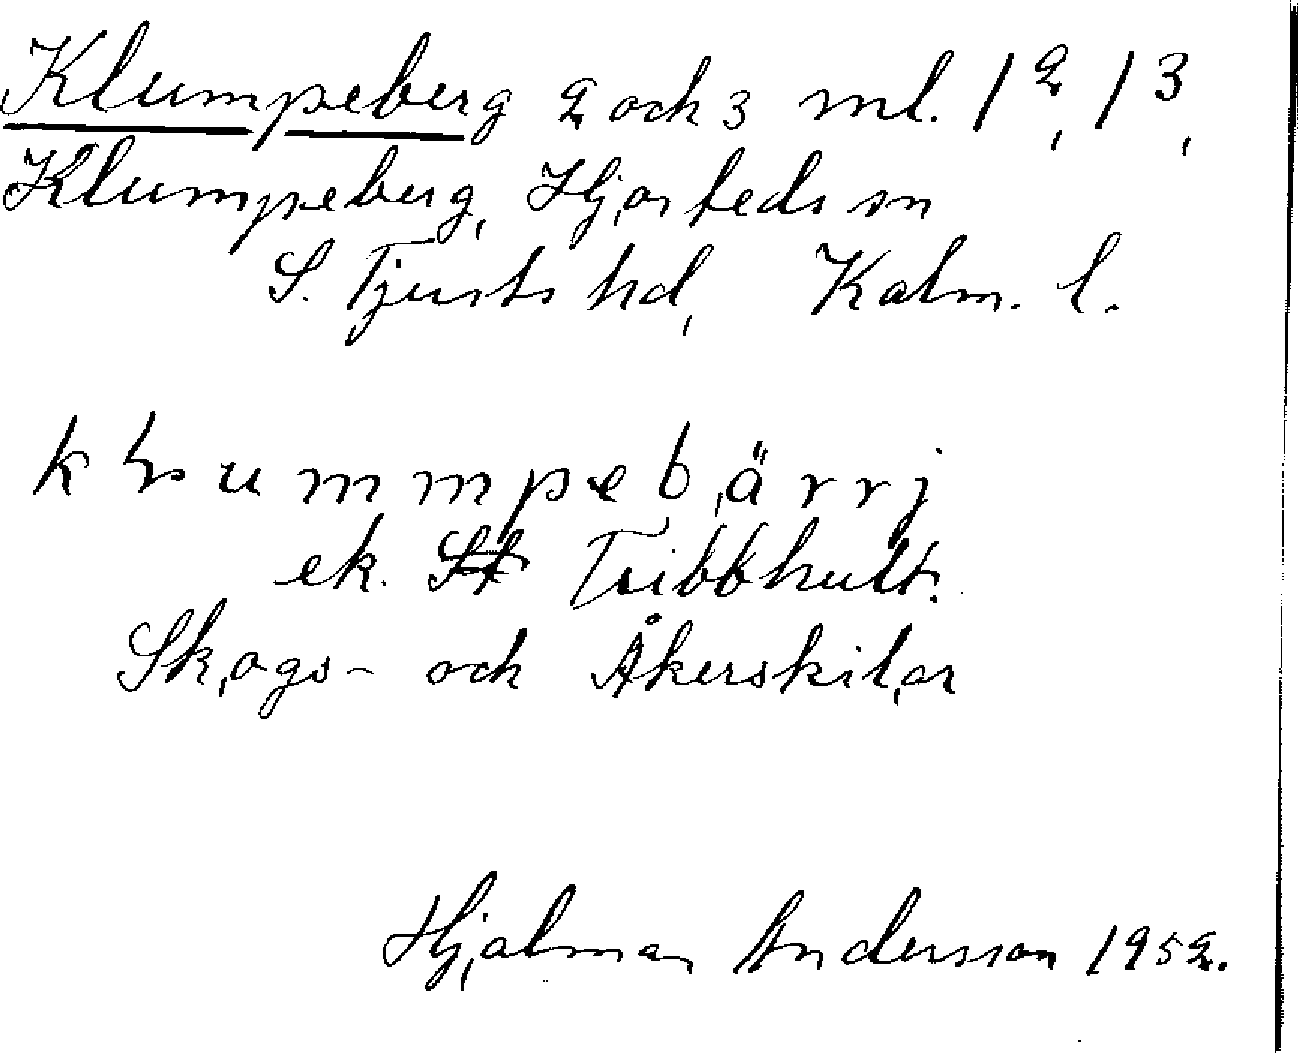 Klumpeberg 2 och 3 ml. 1², 1³,
Klumpeberg, Hjorteds sn
S. Tjusts hd, Kalm. l.
klummpebärrj
ek. Tribbhult.
Skogs- och Åkerskil,ar
Hjalmar Andersson 1952.